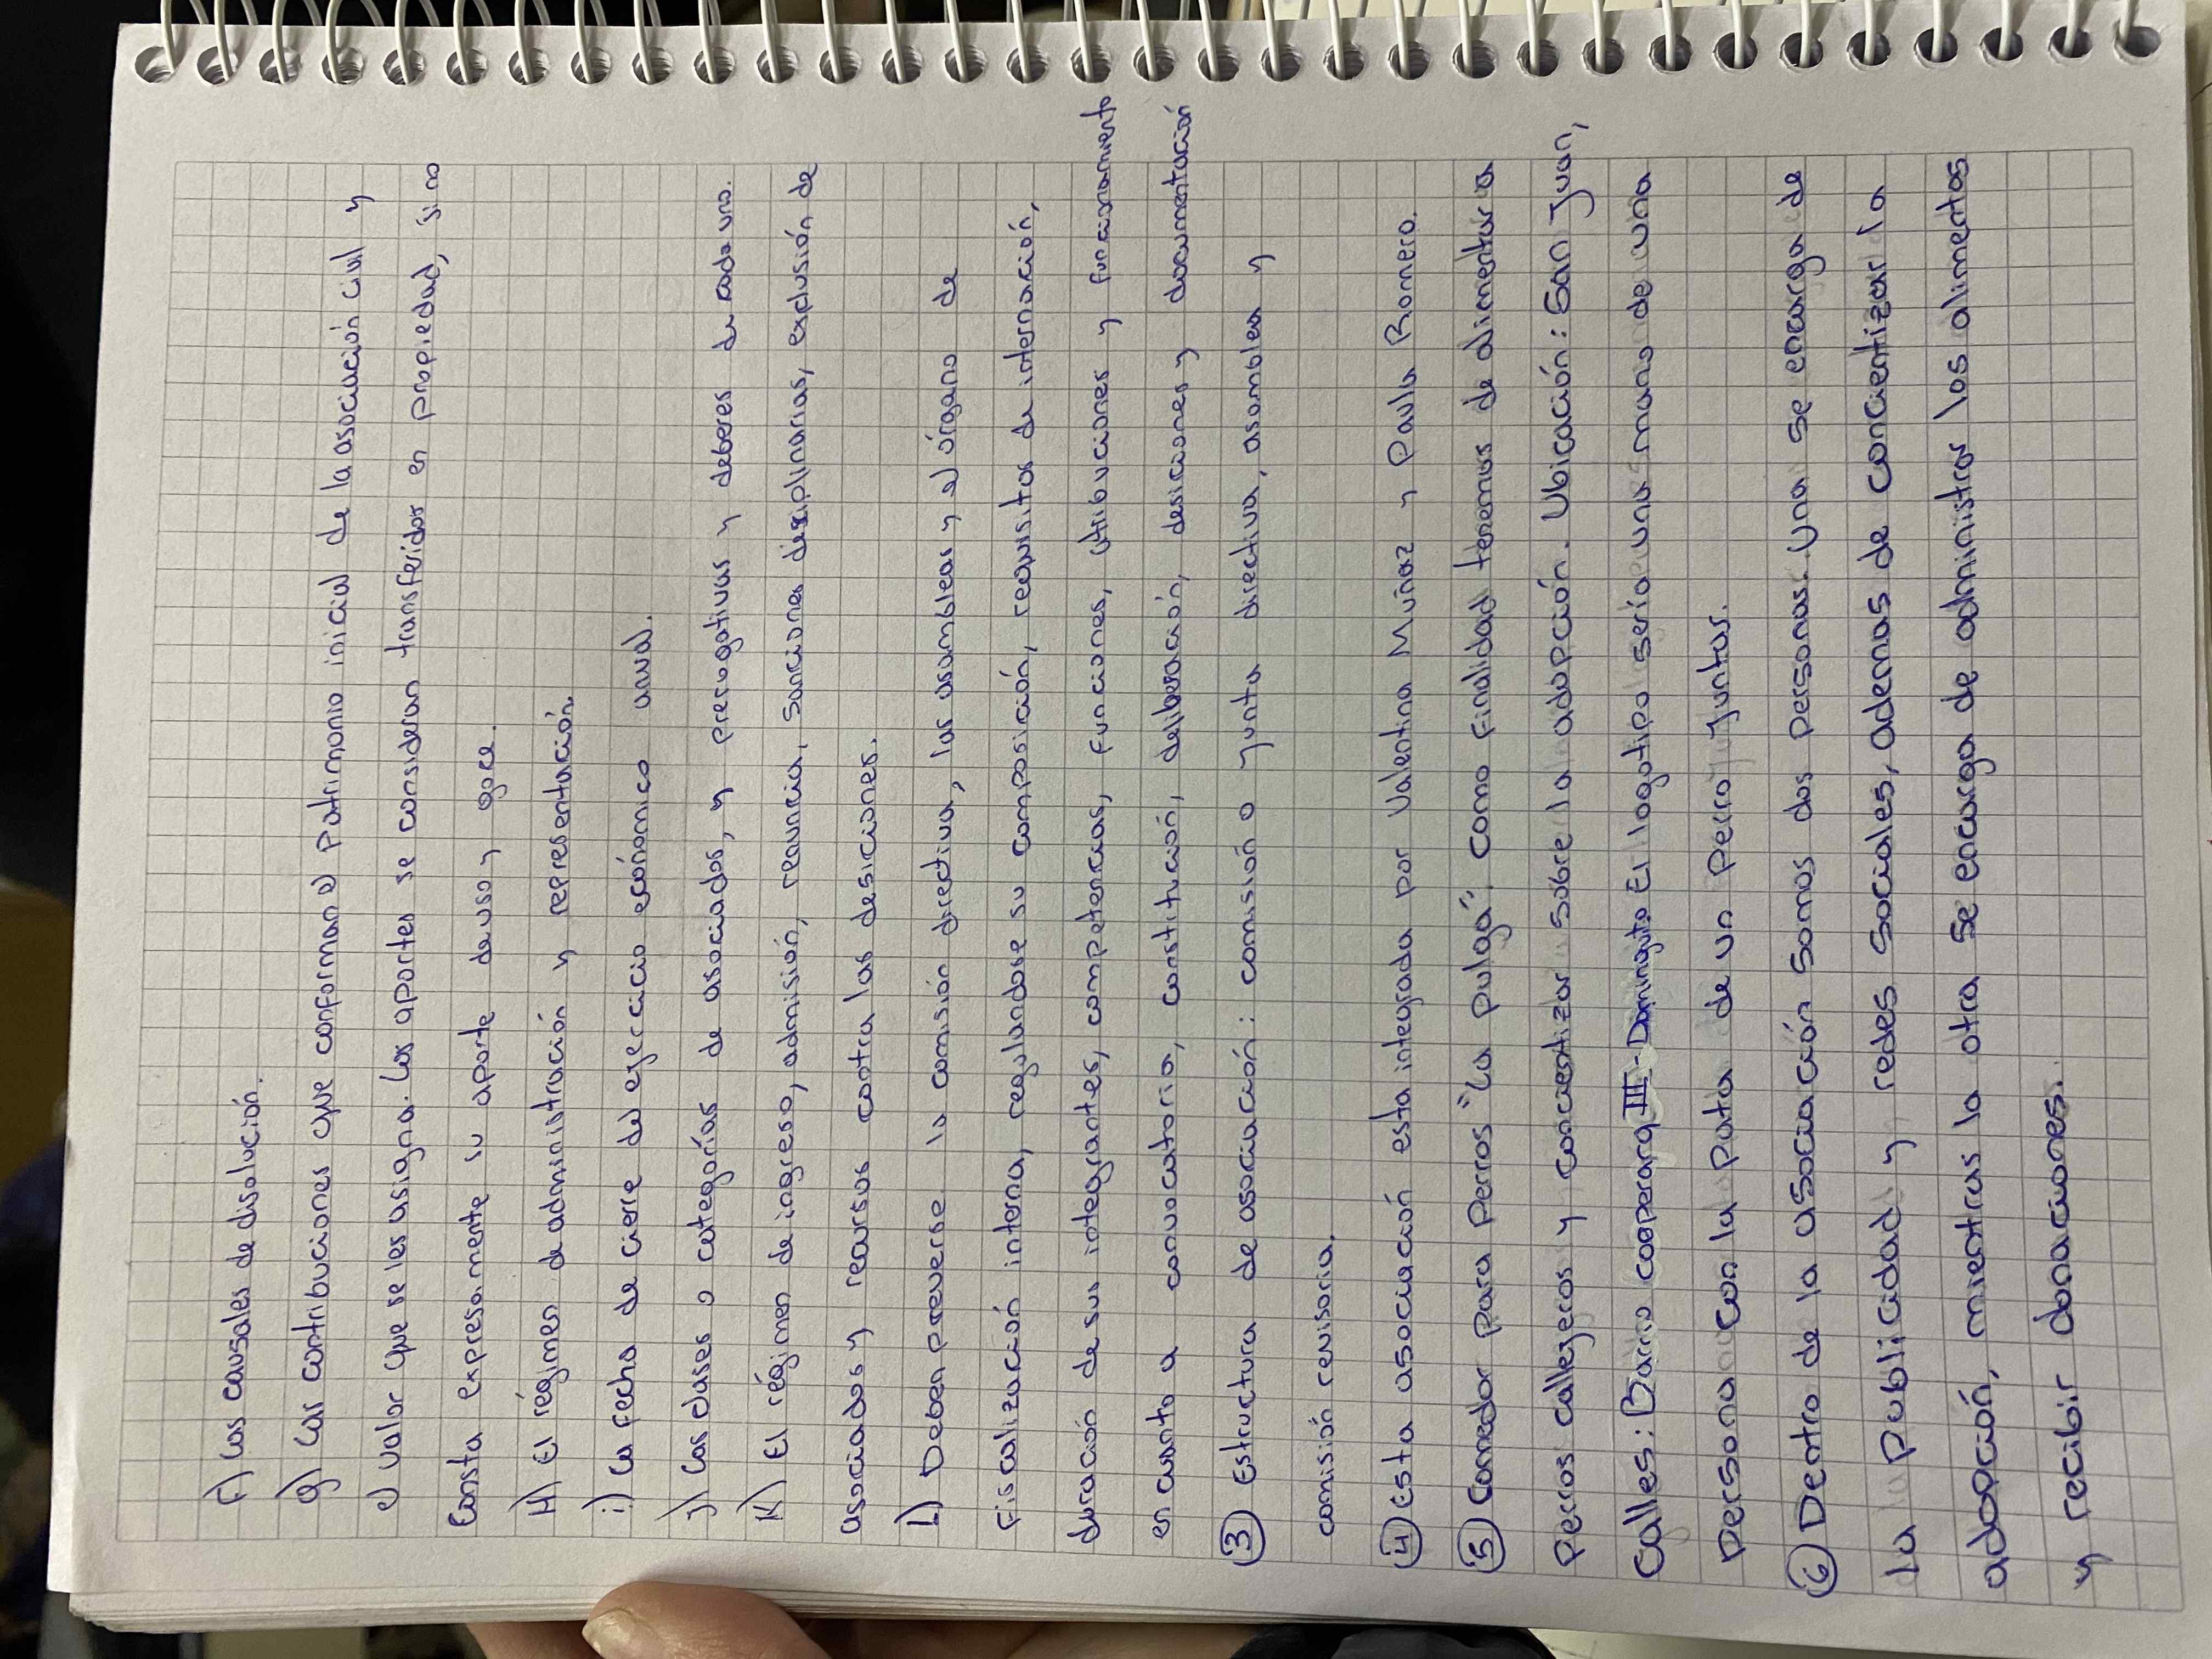 F) Las causales de disolución.
g) Las contribuciones que conforman el Patrimonio inicial de la asociación civil y
el valor que se les asigna. Los aportes se consideran transferidos en propiedad, si no
Consta expresamente su aporte de uso y goce.
H) El régimen de administración y representación.
i) La fecha de cierre del ejercicio ecónomico anual.
j) Las clases o categorías de asociados, y prerrogativas y deberes de cada uno.
K) El régimen de ingreso, admisión, renuncia, sanciones disciplinarias, explusión de
asociados y recursos contra las desiciones.
L) Deben preverse la comisión directiva, las asambleas y el órgano de
Fiscalización interna, regulandose su composición, requisitos de internación,
duración de sus integrantes, competencias, funciones, atribuciones y funcionamiento
en cuanto a convocatoria, constitución, deliberación, desiciones y documentación
③ Estructura de asociación: comisión o junta directiva, asamblea y
comisión revisoria.
④ Esta asociación esta integrada por Valentina Muñoz y Paula Romero.
⑤ Comedor para perros "La pulga". Como finalidad tenemos de alimentar a
Perros callejeros y concientizar sobre la adopción. Ubicación: San Juan,
Calles: Barrio cooperarq III - Dominguito El logotipo sería una mano de una
persona con la pata de un perro juntas.
⑥ Dentro de la asociación somos dos personas. Una se encarga de
la publicidad y redes sociales, ademas de concientizar la
adopción, mientras la otra se encarga de administrar los alimentos
y recibir donaciones.